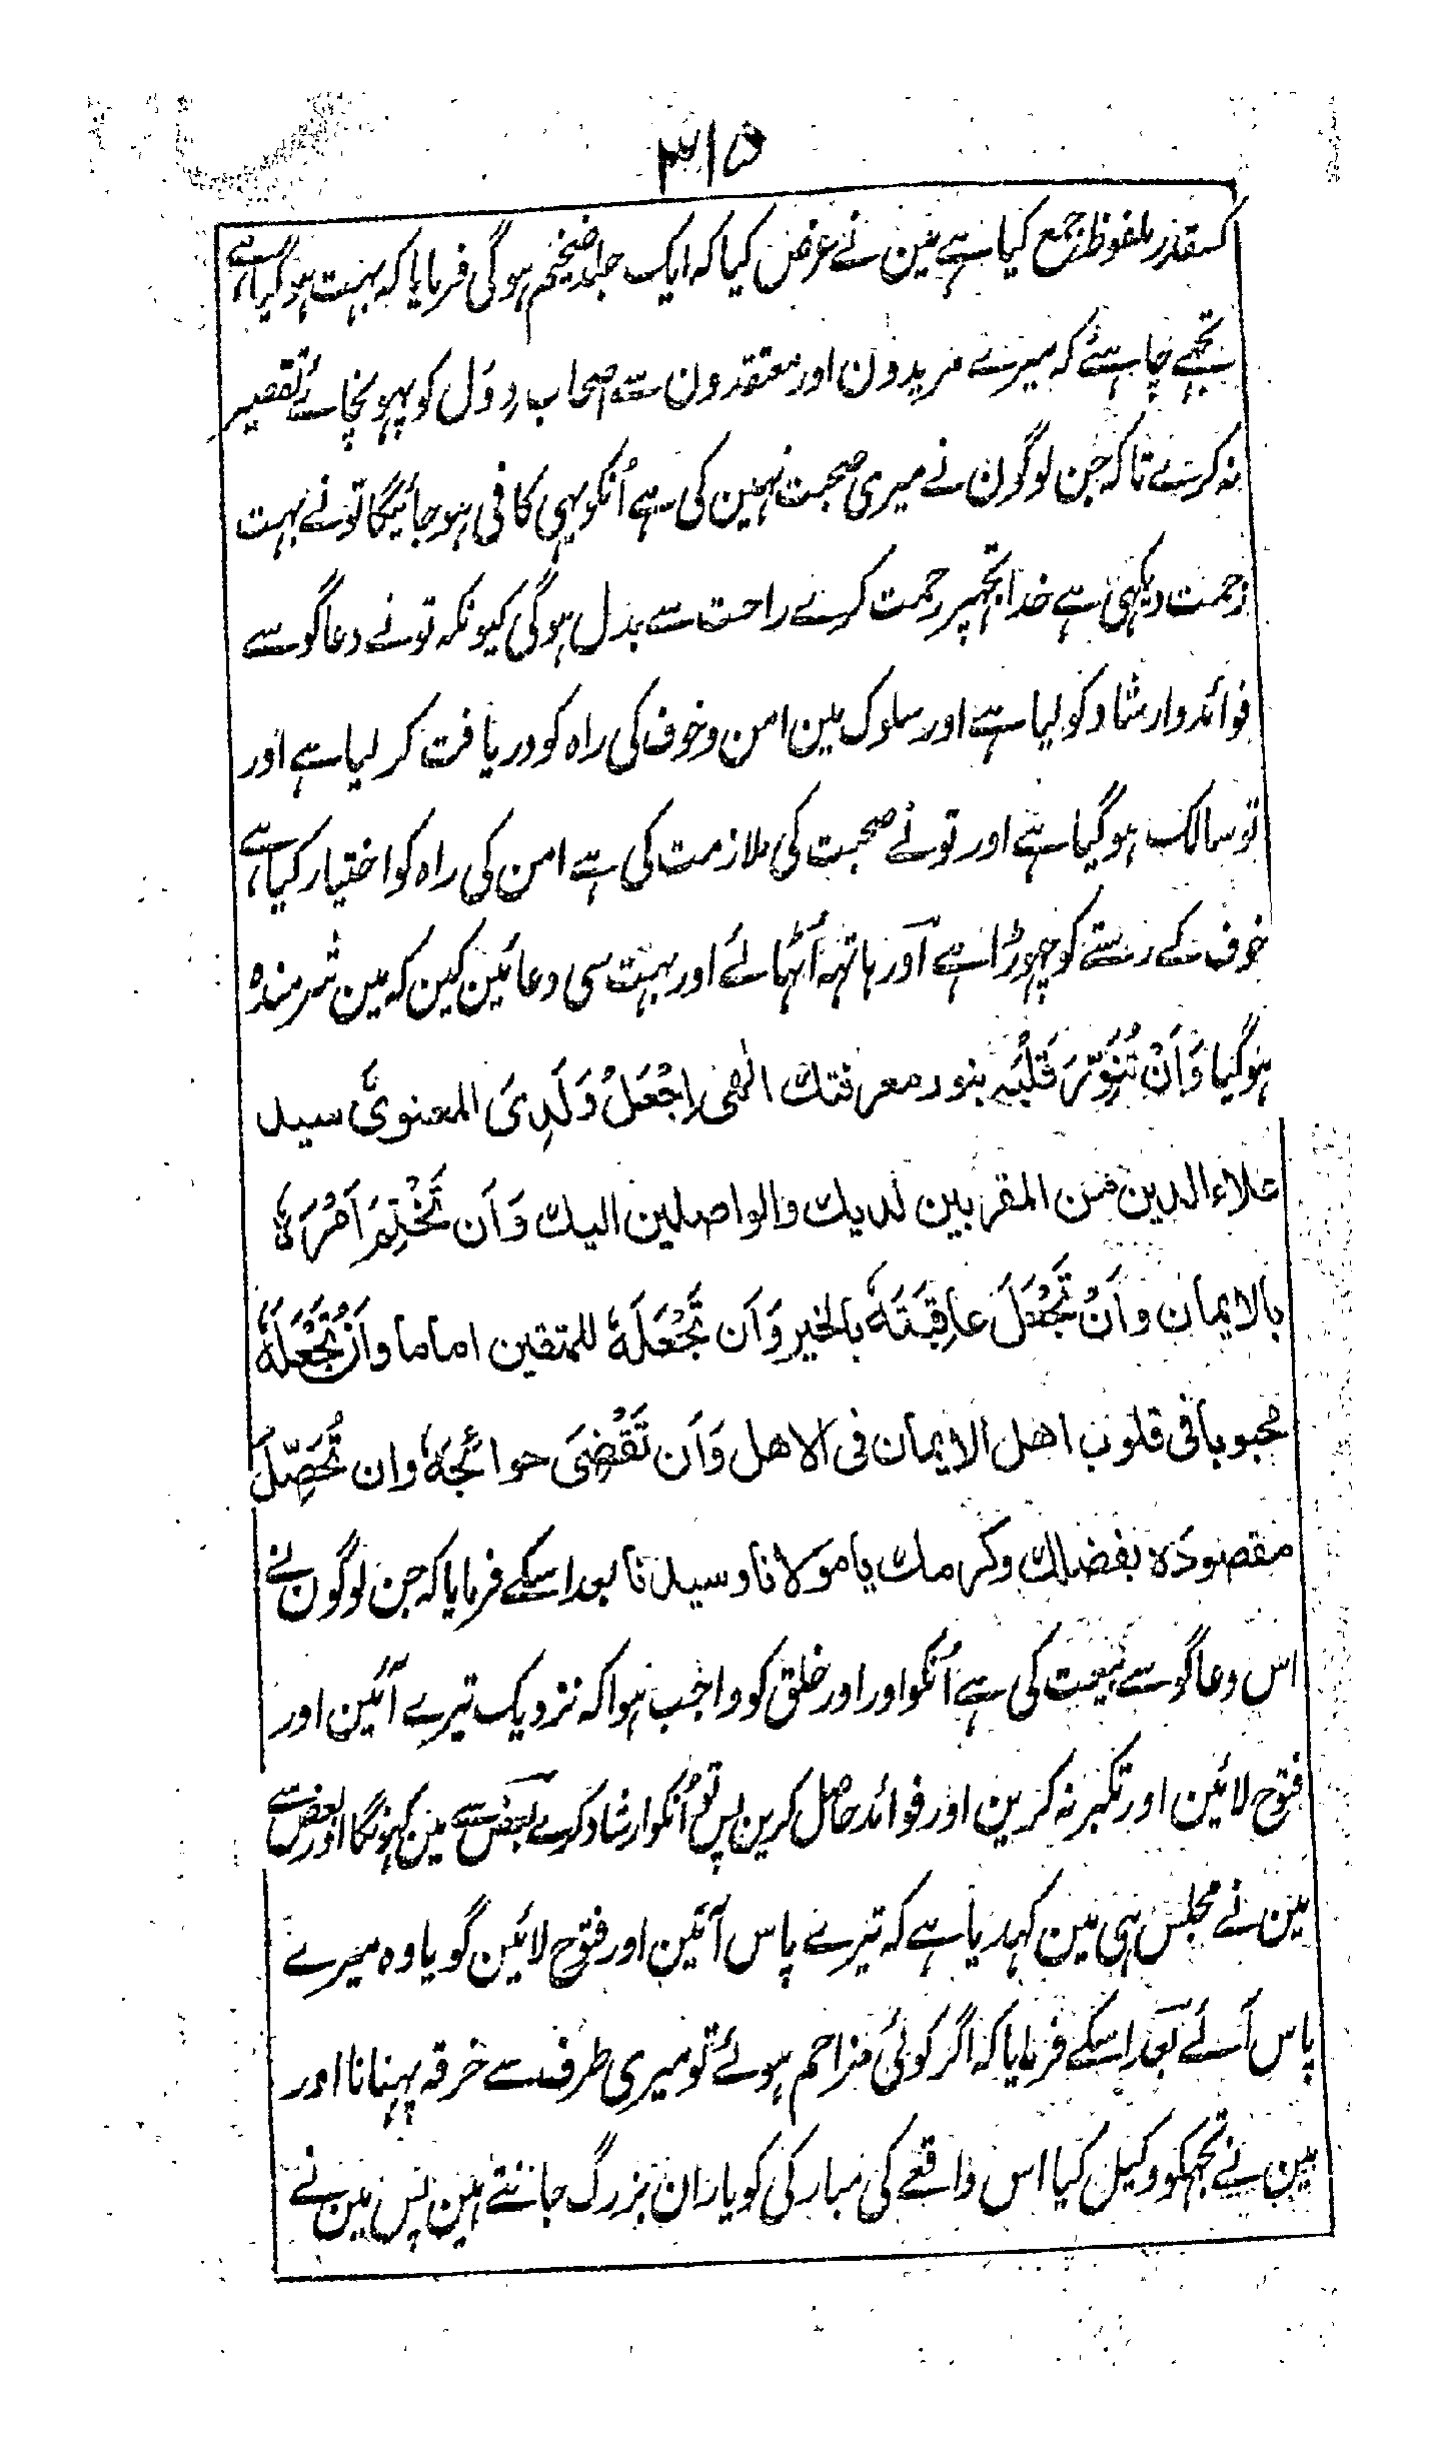 ۳۱۵
کسقدر ملفوظ جمع کیا ہے مین نے عرض کیا کہ ایک جلد ضخیم ہوگی فرمایا کہ بہت ہوگیا ہے
تجھے چاہئے کہ میرے مریدون اور معتقدون سے اصحاب ردول کو پہونچائے تقصیر
نہ کرے تا کہ جن لوگون نے میری صحبت نہین کی ہے اُنکو یہی کافی ہو جائیگا تو نے بہت
زحمت دیکھی ہے خدا تجھپر رحمت کرے راحت سے بدل ہوگی کیونکہ تو نے دعاگو سے
فوائد وارشاد کو لیا ہے اور سلوک مین امن وخوف کی راہ کو دریافت کر لیا ہے اور
تو سالک ہوگیا ہے اور تو نے صحبت کی ملازمت کی ہے امن کی راہ کو اختیار کیا ہے
خوف کے رستے کو چھوڑا ہے اور ہاتھ اُٹھائے اور بہت سی دعائین کین کہ مین شرمندہ
ہوگیا وَاَنْ تُنَوِّرَ قَلْبَہ بنور معرفتك الٰھی اِجْعَلْ وَلَدِیَ المعنویَّ سید
علاء الدین من المقربین لدیك والواصلین الیك وَاَن تَخْتِمَ اَمْرَهٗ
بالایمان واَنْ تَجْعَلَ عاقِبَتَهٗ بالخیر وَاَن تَجْعَلَهٗ للمتقین اماما واَنْ تَجْعَلَهٗ
محبوبا فی قلوب اھل الایمان فی الاھل وَاَن تَقْضِیَ حوائجَهٗ وان تُحَصِّلَ
مقصودَہ بفضلك وکرمك یا مولانا وسیدنا بعد اسکے فرمایا کہ جن لوگون نے
اس دعاگو سے بیعت کی ہے اُنکو اور اور خلق کو واجب ہوا کہ نزدیک تیرے آئین اور
فتوح لائین اور تکبر نہ کرین اور فوائد حاصل کرین پس تو اُنکو ارشاد کرے بعض سے مین کہونگا اور بعض سے
مین نے مجلس ہی مین کہدیا ہے کہ تیرے پاس آئین اور فتوح لائین گویا وہ میرے
پاس آئے بعد اسکے فرمایا کہ اگر کوئی مزاحم ہوئے تو میری طرف سے خرقہ پہنانا اور
مین نے تجھکو وکیل کیا اس واقعے کی مبارکی کو یاران بزرگ جانتے ہین پس مین نے